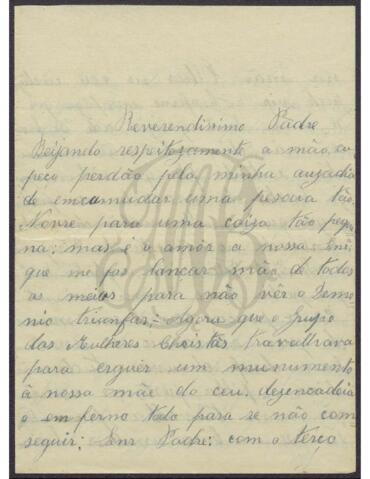 Reverendissimo Padre
Beijando respeitozamente a mão, eu
peço perdão pela minha auzadia
de emcamudar uma pesoua tão
Novre para uma coiza tão peque
na: mas é o amôr a nossa
que me fas lancar mão de todos
os meios para não vêr o Demo
nio triunfar; Agora que o Grupo
das Mulheres Christãs travalhava
para erguer um munumento
à nossa mãe do ceu, dezencadeia
o emferno todo para se não com
seguir; Senr Padre: com o terço